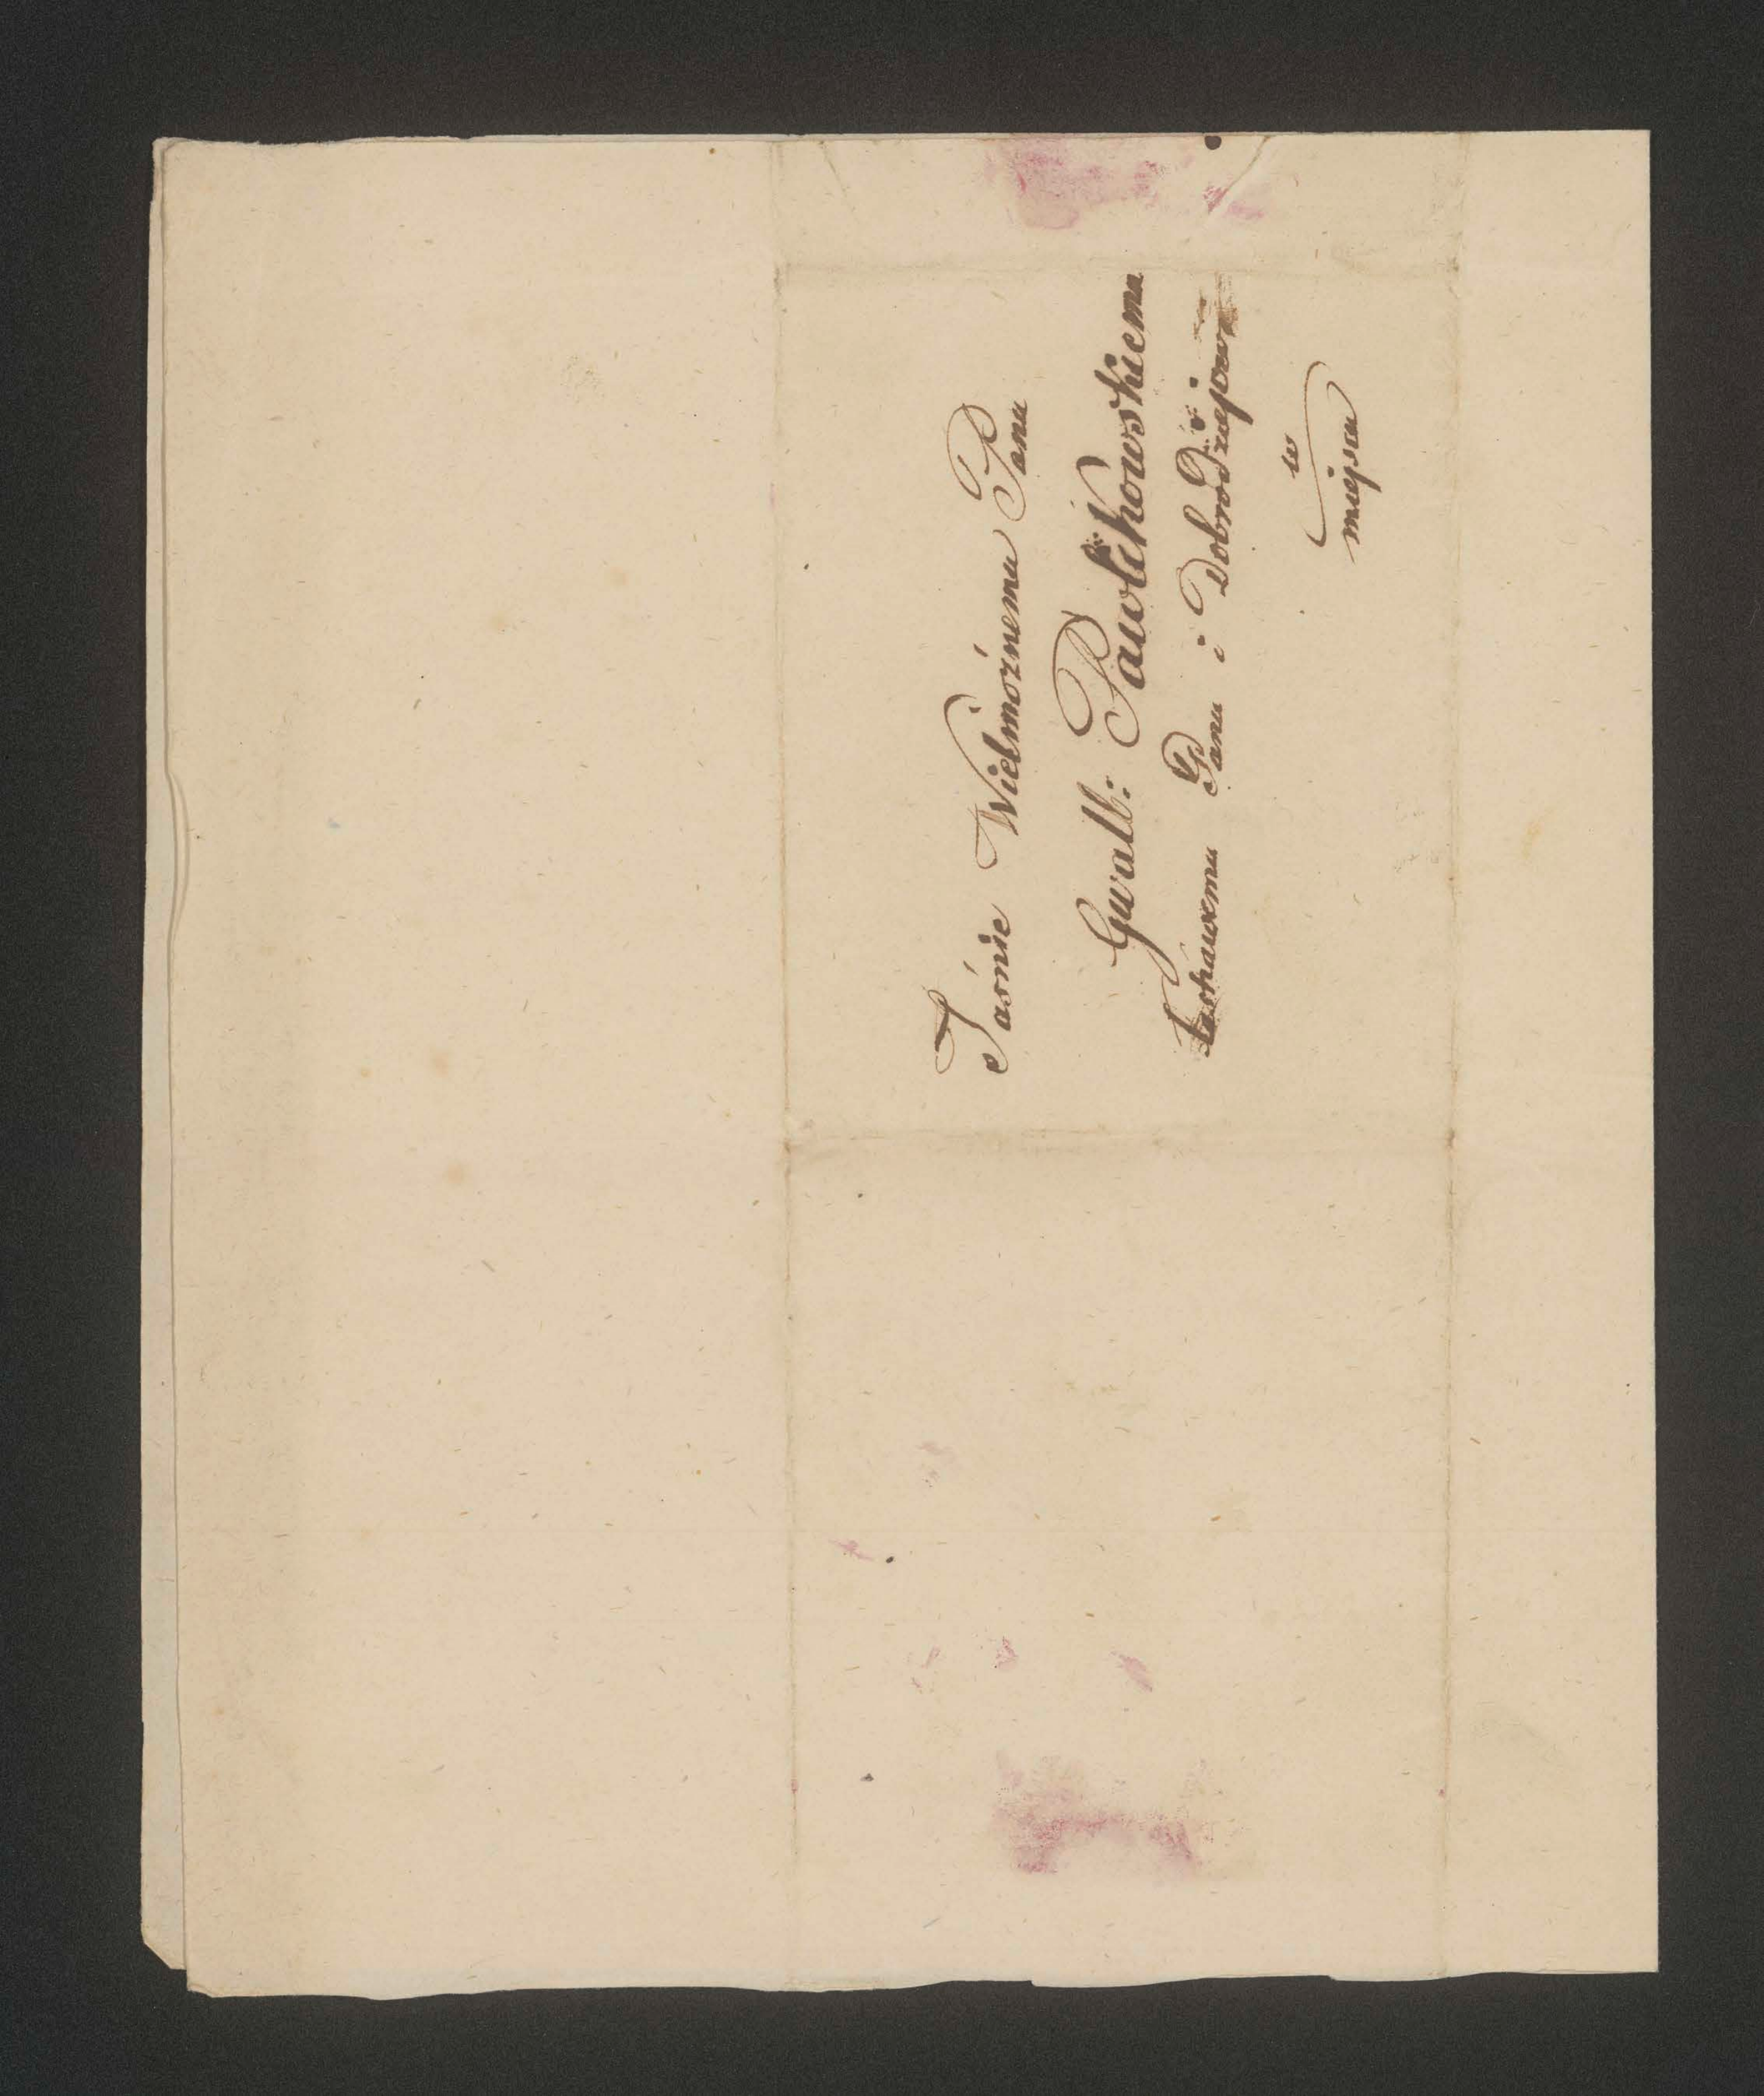 Jaśnie Wielmożnemu Panu
Gwalb: Pawlikowskiemu
Łaskawemu Panu i Dobrodziejowi
w
miejscu